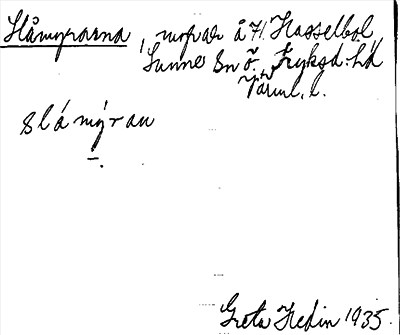 Slåmyrarna, myrar å H. Hasselbol,
Sunne sn ö. Fryksd. hd
Värml. l.
slåmýran
Greta Hedin 1935.